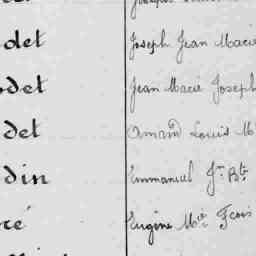 det Joseph Jean Marie
det Jean Marie Joseph
det Amand Louis M
din Emmanuel Jn Bte
ré Eugène Mie Fcois